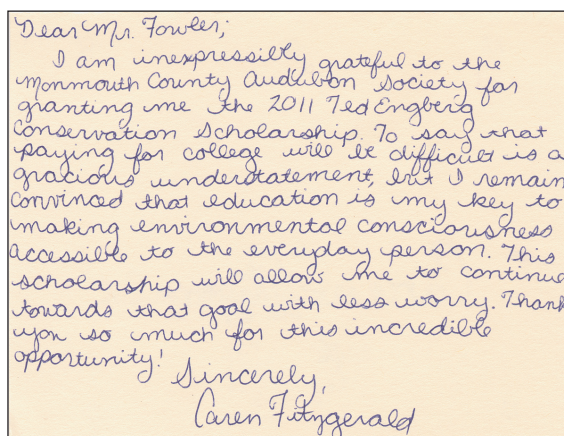 Dear Mr. Fowler;
I am inexpressibly grateful to the
Monmouth County Audubon Society for
granting me the 2011 Ted Engberg
Conservation Scholarship. To say that
paying for college will be difficult is a
gracious understatement, but I remain
convinced that education is my key to
making environmental consciousness
accessible to the everyday person. This
scholarship will allow me to continue
towards that goal with less worry. Thank
you so much for this incredible
opportunity!
Sincerely,
Caren Fitzgerald